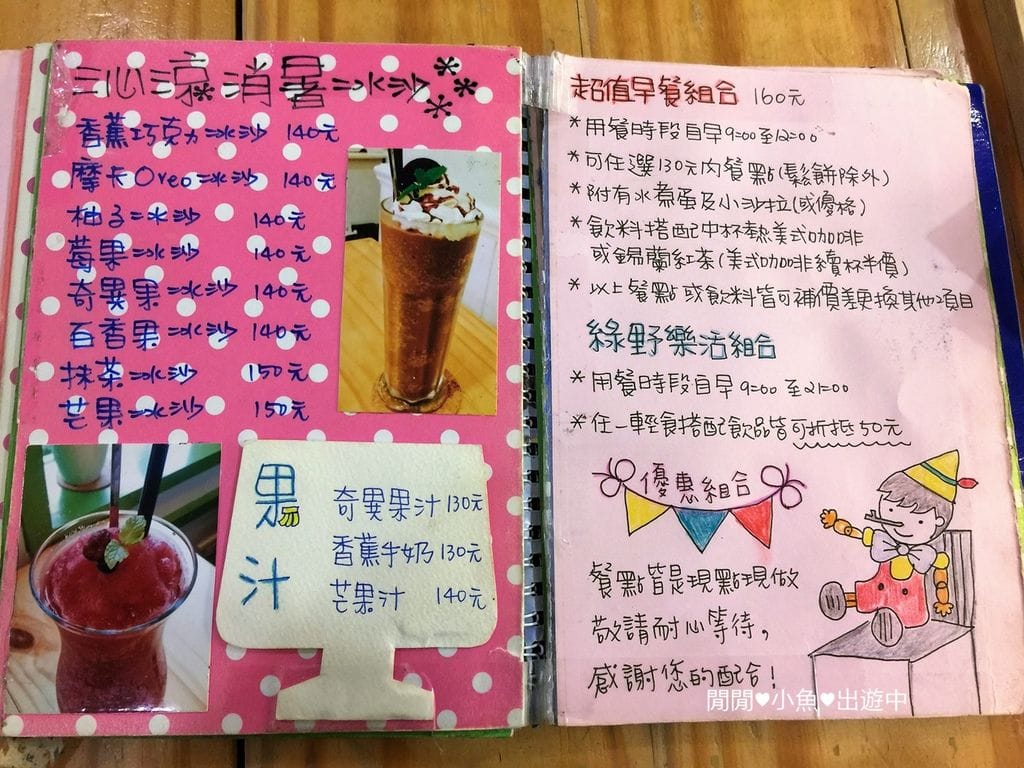 沁涼消暑冰沙***
香蕉巧克力冰沙 140元
摩卡Oreo冰沙 140元
柚子冰沙 140元
莓果冰沙 140元
奇異果冰沙 140元
百香果冰沙 140元
抹茶冰沙 150元
芒果冰沙 150元
果汁
奇異果汁 130元
香蕉牛奶 130元
芒果汁 140元
超值早餐組合 160元
*用餐時段自早9:00至12:00
*可任選130元內餐點(鬆餅除外)
*附有水煮蛋及小沙拉(或優格)
*飲料搭配中杯熱美式咖啡
或錫蘭紅茶(美式咖啡續杯半價)
*以上餐點或飲料皆可補價差更換其他項目
綠野樂活組合
*用餐時段自早9:00至21:00
*任一輕食搭配飲品皆可折抵50元
優惠組合
餐點皆是現點現做
敬請耐心等待,
感謝您的配合!
閒閒♥小魚♥出遊中